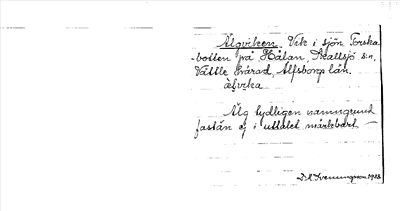 Älgviken. Vik i sjön Torska-
botten på Hålan, Skallsjö sn,
Vättle härad, Älfsborgs län.
älvika
Älg tydligen namngrund
fastän ej i uttalet märkbart.
D.A. Svenningson 1923